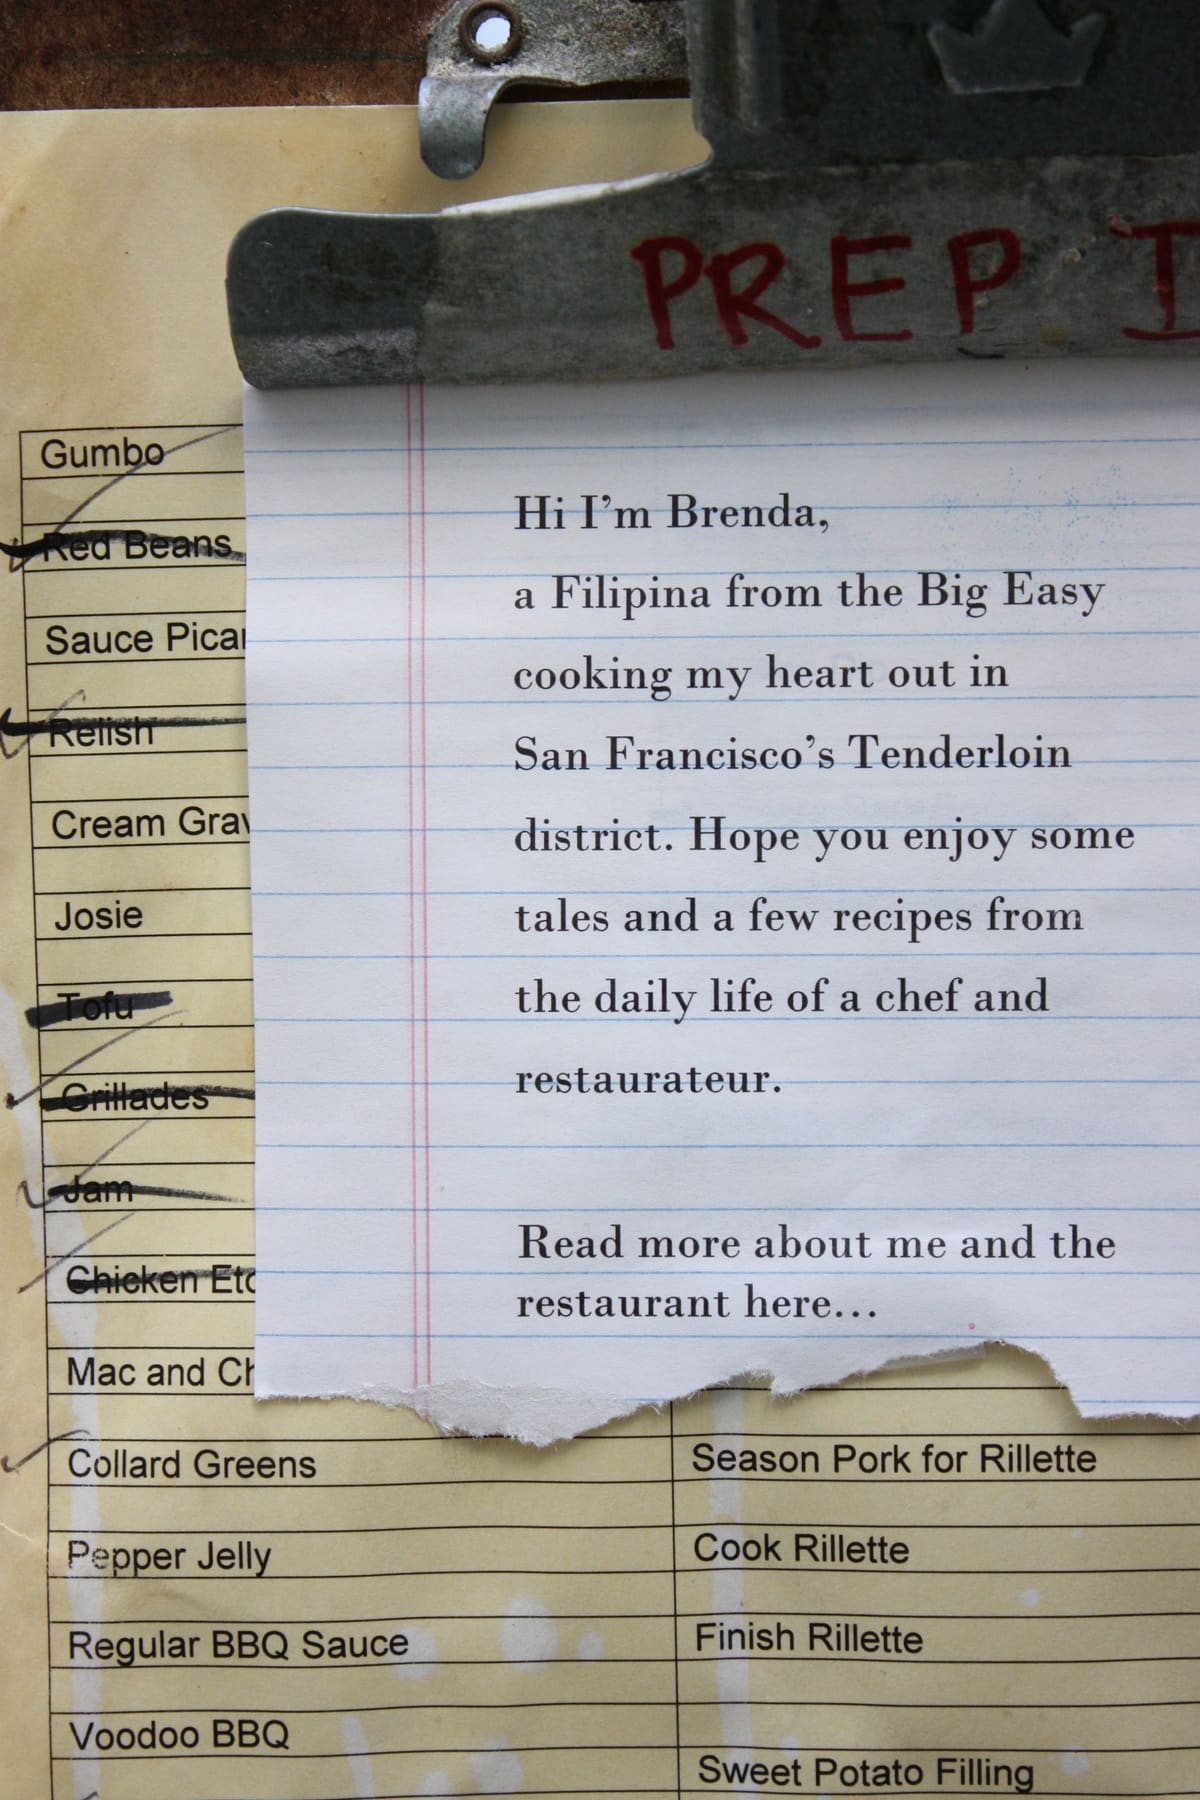 PREP
Gumbo
Red Beans
Sauce
Relish
Cream
Josie
Tofu
Grillades
Jam
Chicken
Mac and
Collard Greens
Pepper Jelly
Regular BBQ Sauce
Voodoo BBQ
Hi I’m Brenda,
a Filipina from the Big Easy
cooking my heart out in
San Francisco’s Tenderloin
district. Hope you enjoy some
tales and a few recipes from
the daily life of a chef and
restaurateur.
Read more about me and the
restaurant here...
Season Pork for Rillette
Cook Rillette
Finish Rillette
Sweet Potato Filling